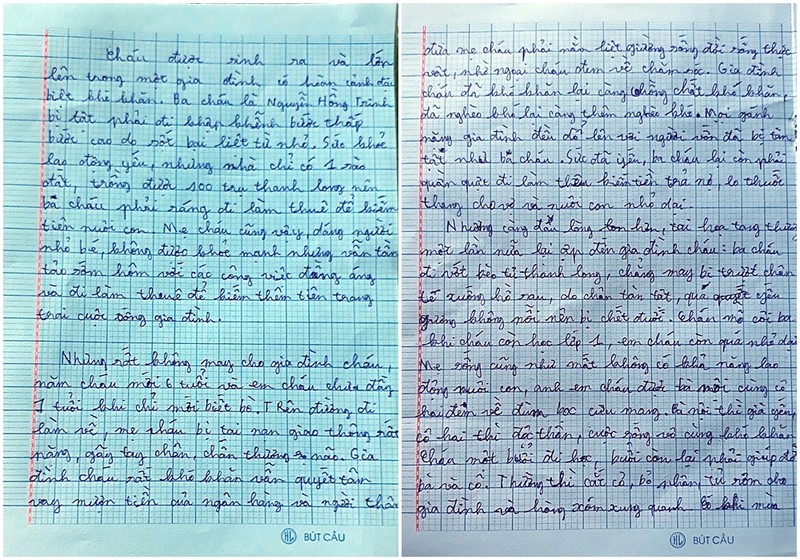 Cháu được sinh ra và lớn
lên trong một gia đình có hoàn cảnh đặc
biệt khó khăn. Ba cháu là Nguyễn Hồng Trinh
bị tật phải đi khập khểnh bước thấp
bước cao do sốt bại liệt từ nhỏ. Sức khỏe
lao động yếu, nhưng nhà chỉ có 1 sào
đất, trồng được 100 trụ thanh long nên
ba cháu phải ráng đi làm thuê để kiếm
tiền nuôi con. Mẹ cháu cũng vậy, dáng người
nhỏ bé, không được khỏe mạnh nhưng vẫn tần
tảo sớm hôm với các công việc đồng áng
và đi làm thuê để kiếm thêm tiền trang
trải cuộc sống gia đình.
Nhưng rất không may cho gia đình cháu,
năm cháu mới 6 tuổi và em cháu chưa đầy
1 tuổi khi chỉ mới biết bò. Trên đường đi
làm về, mẹ cháu bị tai nạn giao thông rất
nặng, gãy tay chân, chấn thương sọ não. Gia
đình cháu rất khó khăn vẫn quyết tâm
vay mượn tiền của ngân hàng và người thân
BÚT CÂU
đưa mẹ cháu phải nằm liệt giường sống đời sống thực
vật, nhờ ngoại cháu đem về chăm sóc. Gia đình
cháu đã khó khăn lại càng chồng chất khó khăn,
đã nghèo khó lại càng thêm nghèo khó. Mọi gánh
nặng gia đình đều đổ lên vai người vốn đã bị tàn
tật như ba cháu. Sức đã yếu, ba cháu lại còn phải
quần quật đi làm thêm kiếm tiền trả nợ, lo thuốc
thang cho vợ và nuôi con nhỏ dại.
Nhưng càng đau lòng hơn nữa, tai họa tang thương
một lần nữa lại ập đến gia đình cháu: ba cháu
đi vớt bèo tủ thanh long, chẳng may bị trượt chân
té xuống hồ sâu, do chân tàn tật, quá yếu
gượng không nổi nên bị chết đuối. Cháu mồ côi ba
khi cháu còn học lớp 1, em cháu còn quá nhỏ dại.
Mẹ sống cũng như mất không có khả năng lao
động nuôi con, anh em cháu được bà nội cùng cô
hai đem về đùm bọc cưu mang. Bà nội thì già yếu,
cô hai thì độc thân, cuộc sống vô cùng khó khăn.
Cháu một buổi đi học, buổi còn lại phải giúp đỡ
bà và cô. Thường thì cắt cỏ, bỏ phân từ sớm cho
gia đình và hàng xóm xung quanh. Có khi mùa
BÚT CÂU